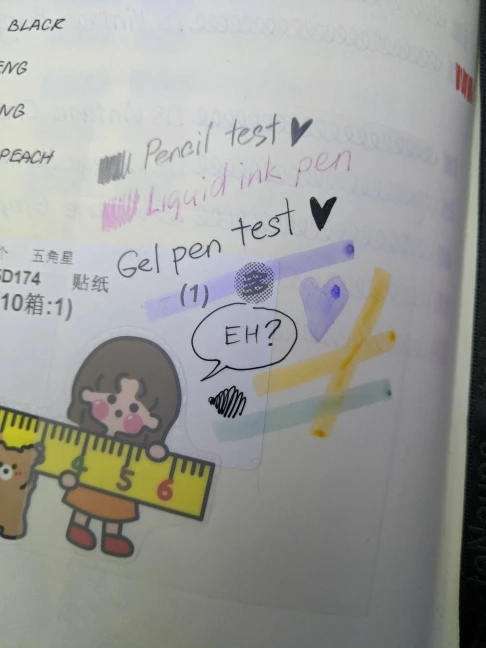 BLACK
ENG
NG
PEACH
Pencil test
Liquid ink pen
Gel pen test
个 五角星
5D174 贴纸
10箱:1)
(1)
EH?
4 5 6